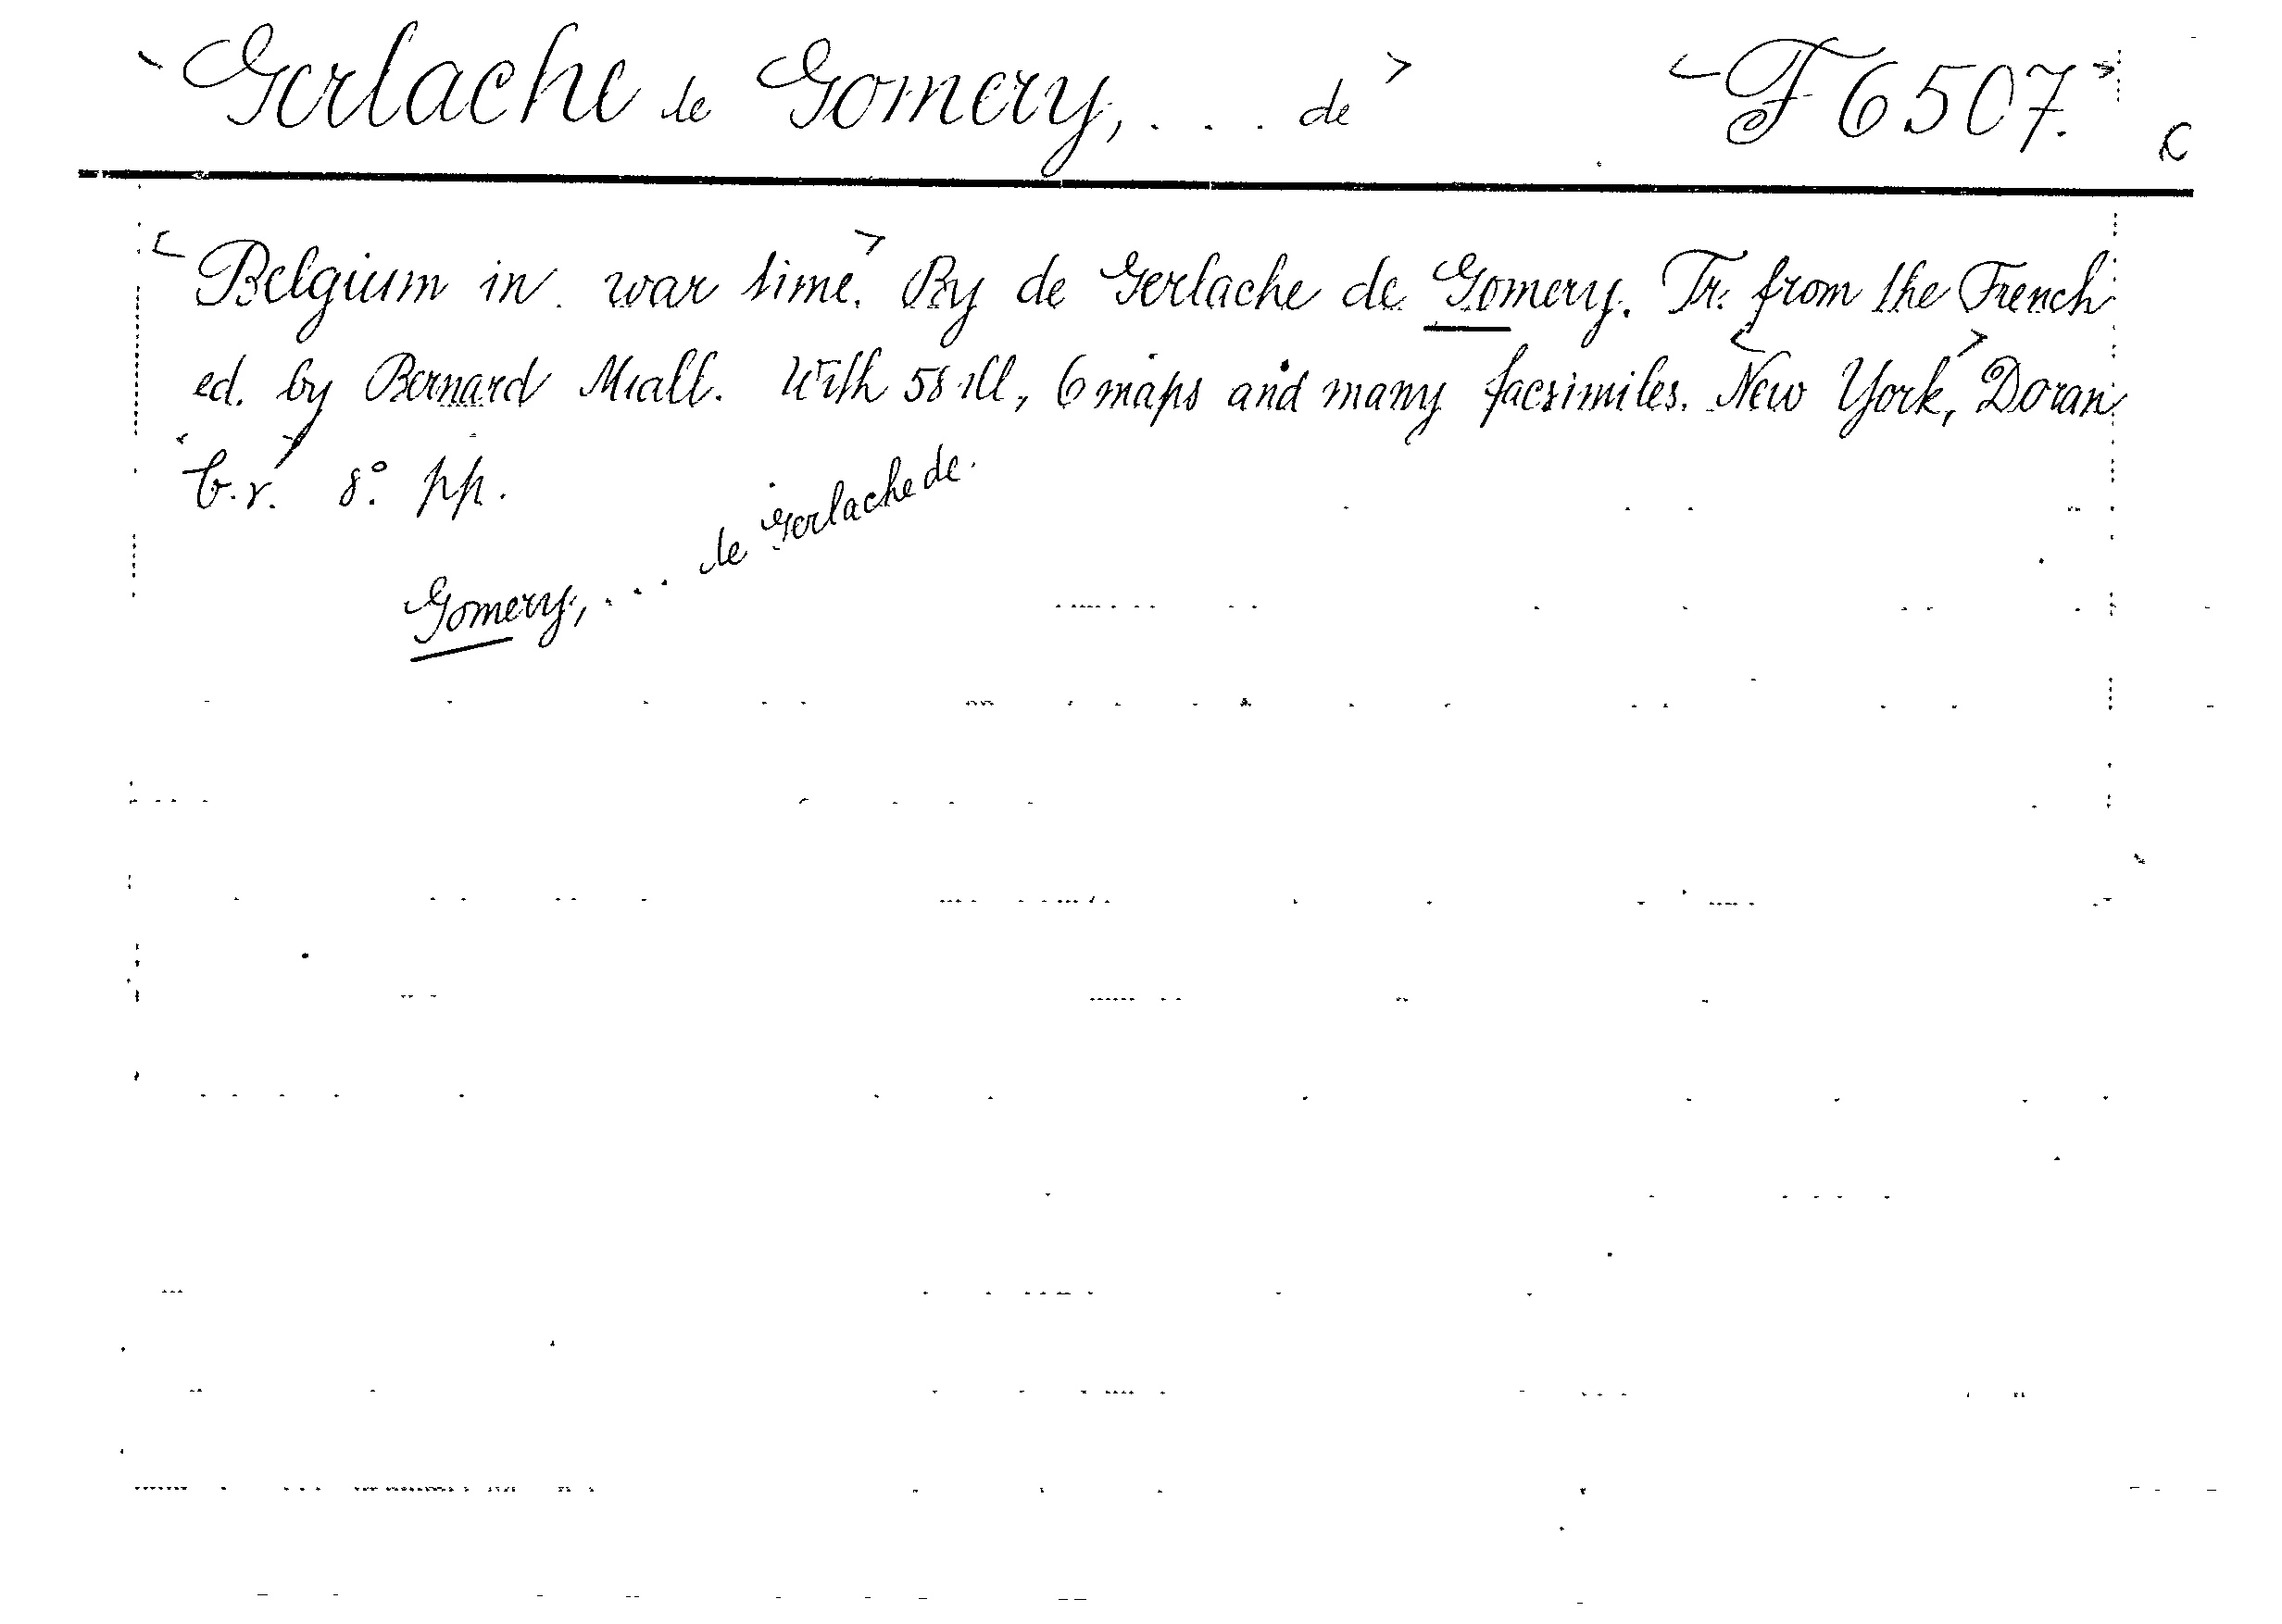 Gerlache de Gomery, . . . de F 6507. C
Belgium in war time. By de Gerlache de Gomery. Tr. from the French
ed. by Bernard Miall. With 58 ill, 6 maps and many facsimiles. New York, Doran
8°. pp.
Gomery, ... de Gerlache de.